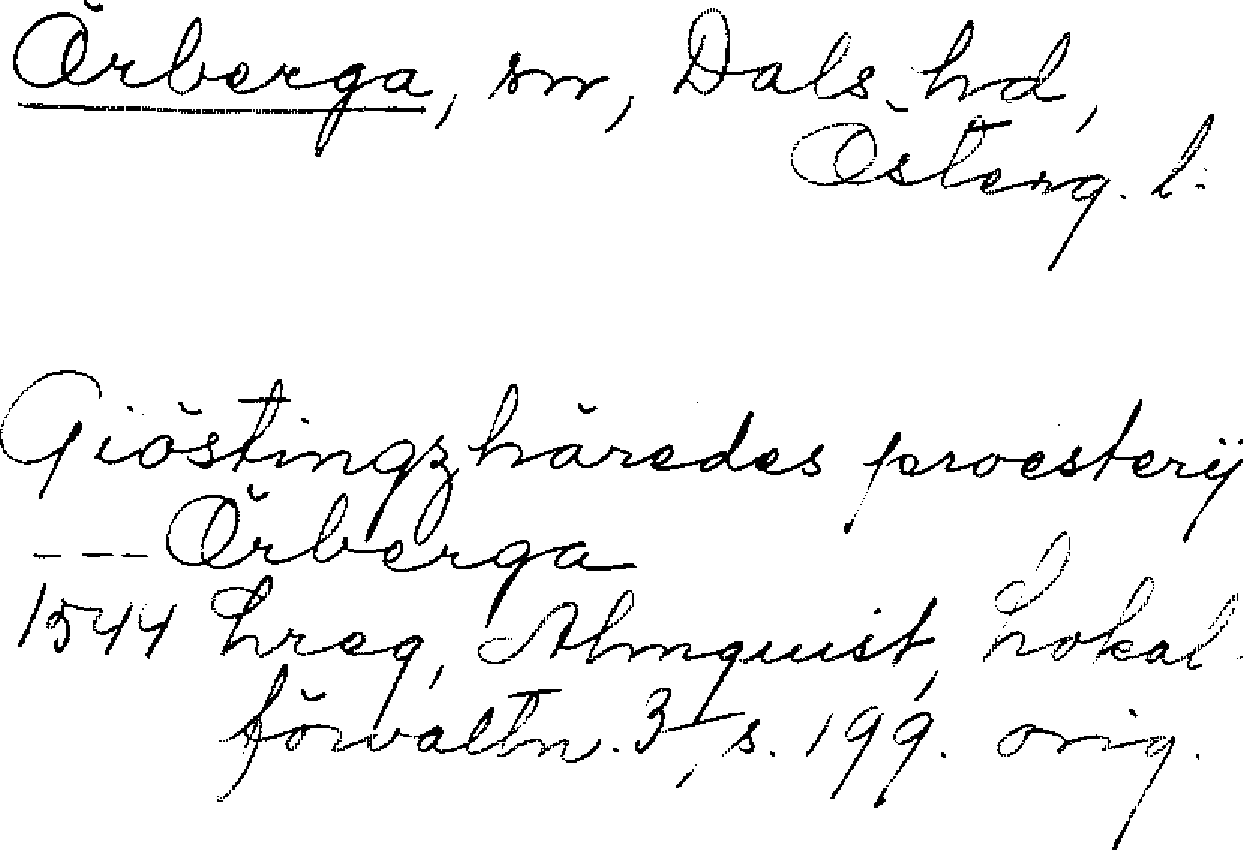 Örberga, sn, Dals hd,
Österg. l.
Giöstingzhäredes proesterij
--- Örberga
1544 Lreg, Almquist, Lokal-
förvaltn. 3, s. 199. orig.